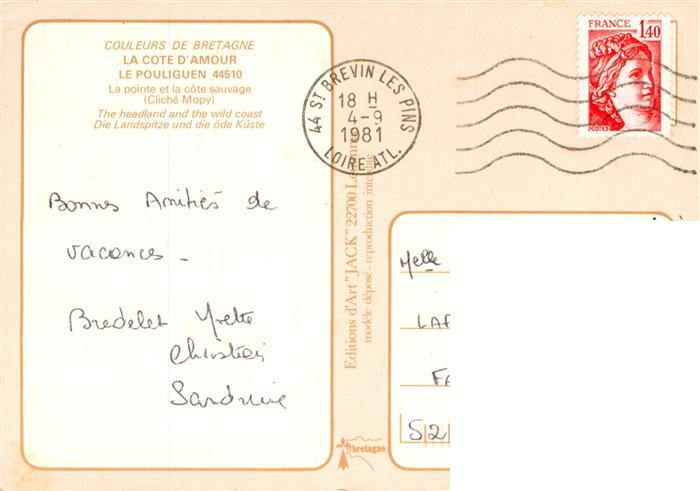 COULEURS DE BRETAGNE
LA COTE D'AMOUR
LE POULIGUEN 44510
La pointe et la côte sauvage
(Cliché Mopy)
The headland and the wild coast
Die Landspitze und die öde Küste
44 ST BREVIN LES PINS
18 H
4-9
1981
LOIRE ATL.
FRANCE
1,40
POSTES
Bonnes Amitiés de
vacances -
Bredelet Yvette
Christian
Sandrine
Editions d'Art "JACK" 22700
modèle déposé - reproduction interdite
bretagne
Melle
LAF
FA
52